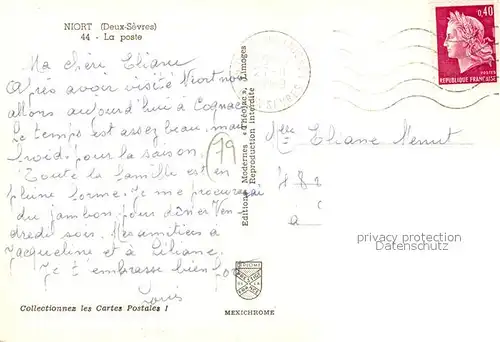 NIORT (Deux-Sèvres)
44 - La poste
Ma chéri Eliane
Après avoir visité Niort nous
allons aujourd'hui à Cognac
Le temps est assez beau, mais
froid pour la saison.
Toute la famille est en
pleine forme. Je me procurerai
du jambon pour dîner Ven
dredi soir. Mes amitiés à
Jacqueline et à Liliane.
Je t'embrasse bien fort
(79)
Editions Modernes « Théojac », Limoges
Reproduction interdite
0,40
POSTES
REPUBLIQUE FRANÇAISE
Mlle Eliane
privacy protection
Collectionnez les Cartes Postales !
MEXICHROME